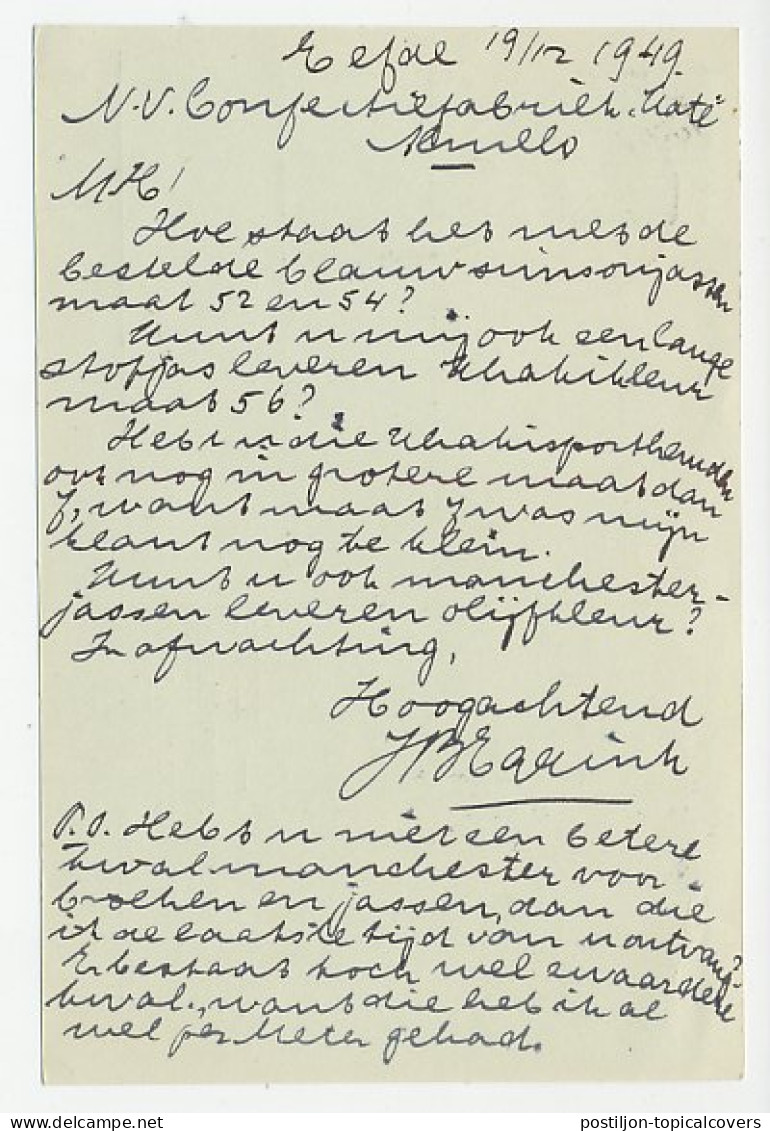 Eefde 19/12 1949.
N.V. Confectiefabriek "Katé"
Almelo
M H!
Hoe staat het met de
bestelde blauw simsonjassen
maat 52 en 54?
Kunt u mij ook een lange
stofjas leveren Khakikleur
maat 56?
Hebt u die Khakisporthemden
ook nog in grotere maat dan
7, want maat 7 was mijn
klant nog te klein.
Kunt u ook manchester-
jassen leveren olijfkleur?
In afwachting,
Hoogachtend
P.S. Hebt u niet een betere
kwal. manchester voor
broeken en jassen, dan die
ik de laatste tijd van u ontvang?
Er bestaat toch wel zwaardere
kwal., want die heb ik al
wel per Meter gehad.
postiljon-topicalcovers